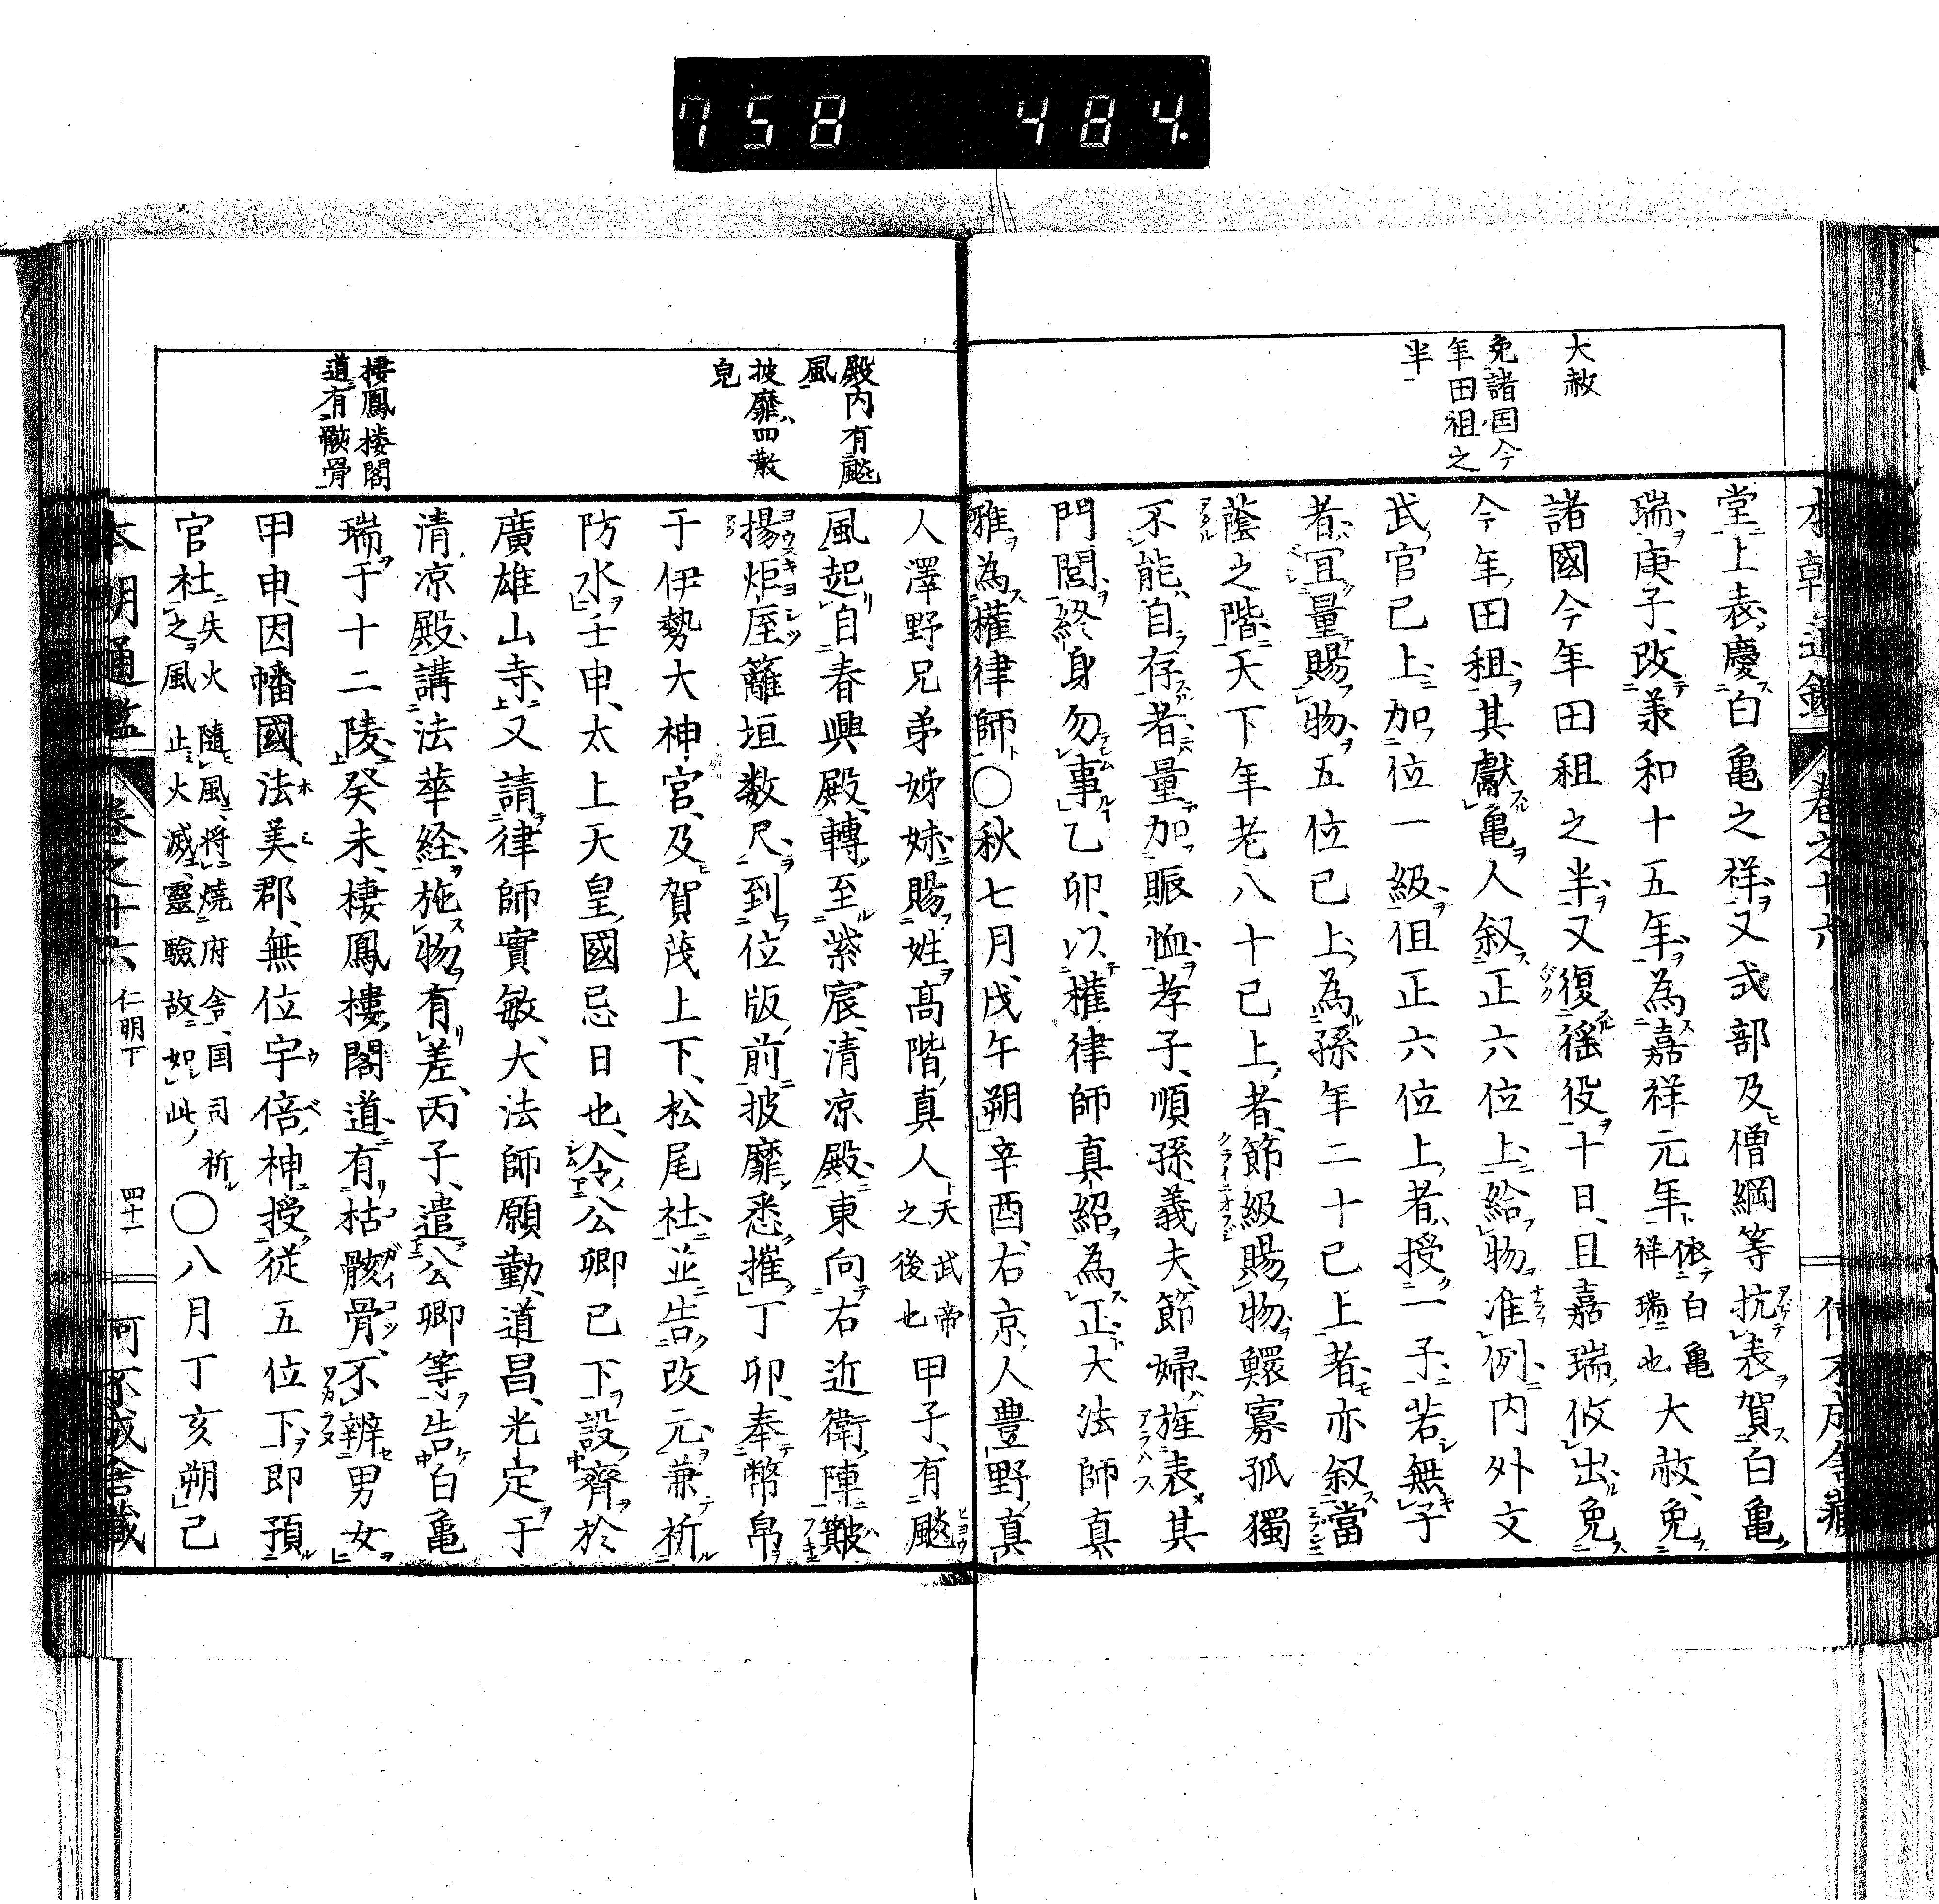 758 484.
大赦
免諸国今
年田祖之
半
堂上表慶白亀之祥又式部及僧綱等抗表賀白亀
瑞庚子改義和十五年為嘉祥元年依白亀祥瑞也大赦免
諸國今年田租之半又復徭役十日且嘉瑞攸出免
今年田租其獻亀人叙正六位上給物准例内外文
武官已上加位一級但正六位上者授一子若無子
者宜量賜物五位已上為孫年二十已上者亦叙當
蔭之階天下年老八十已上者節級賜物鰥寡孤獨
不能自存者量加賑恤孝子順孫義夫節婦旌表其
門閭終身勿事乙卯以權律師真紹為正大法師真
雅為權律師○秋七月戊午朔辛酉右京人豊野真
殿内有飈
風
披靡四散
皃
棲鳳楼閣
道有骸骨
人澤野兄弟姊妹賜姓髙階真人天武帝之後也甲子有飈
風起自春興殿轉至紫宸清凉殿東向右近衛陣皷
揚炬庢籬垣数尺到位版前披靡悉摧丁卯奉幣帛
于伊勢大神宮及賀茂上下松尾社並告改元兼祈
防水壬申太上天皇國忌日也令公卿已下設齊於
廣雄山寺又請律師實敏大法師願勤道昌光定于
清凉殿講法華経施物有差丙子遣公卿等告白亀
瑞于十二陵癸未棲鳳樓閣道有枯骸骨不辨男女
甲申因幡國法美郡無位宇倍神授従五位下即預
官社失火隨風将燒府舎国司祈之風止火滅靈驗故如此○八月丁亥朔己
本朝通鑑 巻之十六 仁明下 四十一